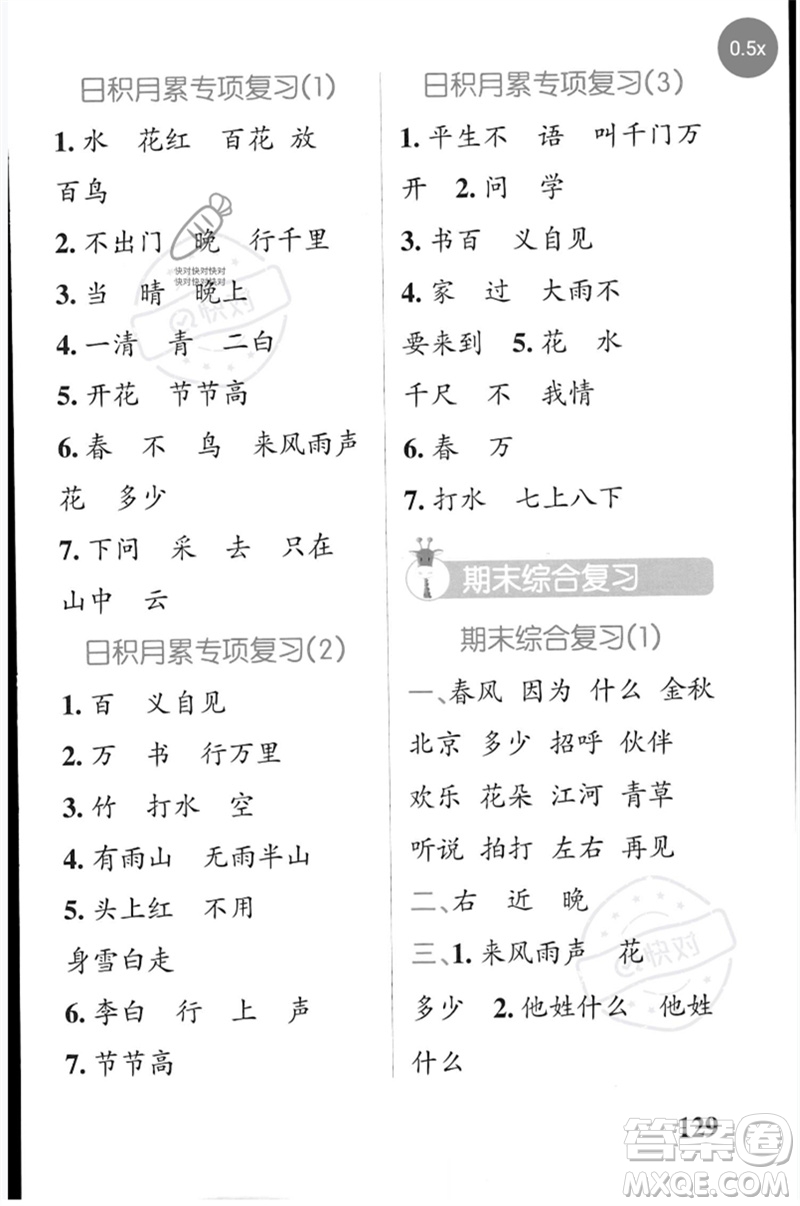 0.5x
日积月累专项复习(1)
1.水 花红 百花 放
百鸟
2.不出门 晚 行千里
3.当 晴 晚上
4.一清 青 二白
5.开花 节节高
6.春 不 鸟 来风雨声
花 多少
7.下问 采 去 只在
山中 云
日积月累专项复习(2)
1.百 义自见
2.万 书 行万里
3.竹 打水 空
4.有雨山 无雨半山
5.头上红 不用
身雪白走
6.李白 行 上 声
7.节节高
日积月累专项复习(3)
1.平生不 语 叫千门万
开 2.问 学
3.书百 义自见
4.家 过 大雨不
要来到 5.花 水
千尺 不 我情
6.春 万
7.打水 七上八下
期末综合复习
期末综合复习(1)
一、春风 因为 什么 金秋
北京 多少 招呼 伙伴
欢乐 花朵 江河 青草
听说 拍打 左右 再见
二、右 近 晚
三、1.来风雨声 花
多少 2.他姓什么 他姓
什么
129
快对快对快对
快对快对快对
快对
快对
答案圈
MXQE.COM